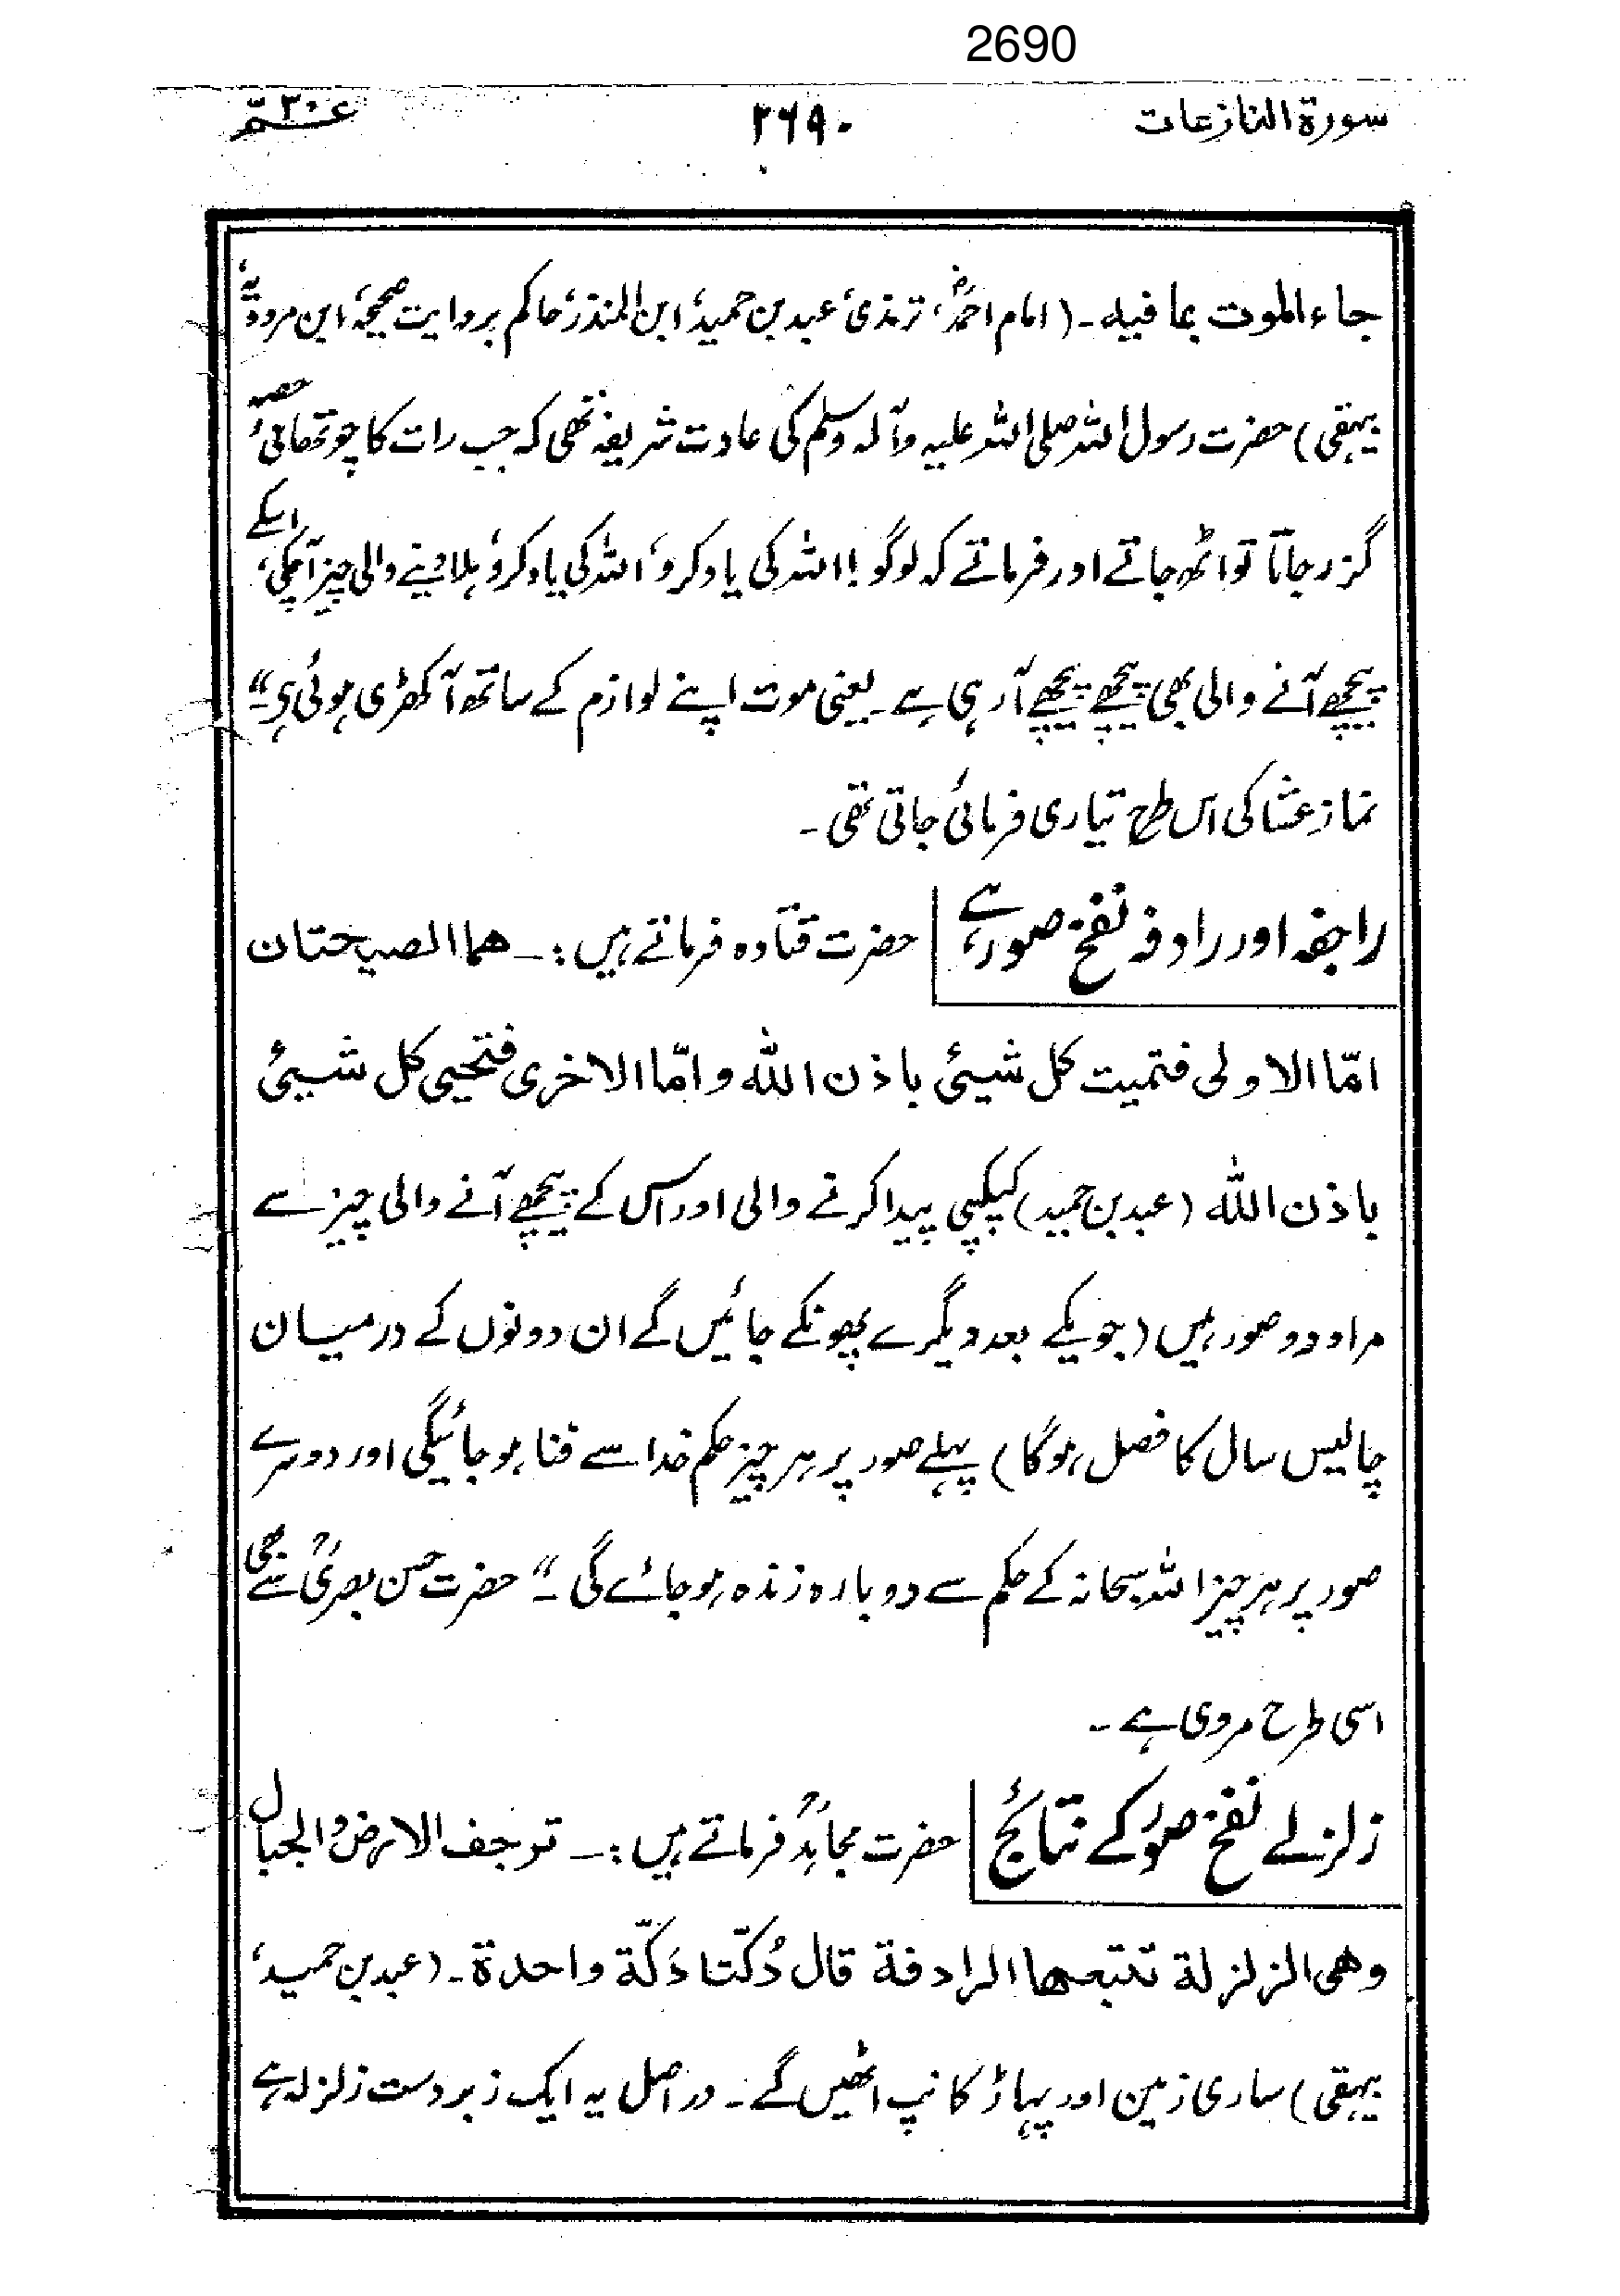 2690
سورۃ النازعات ۲۶۹۰ عمّ ۳۰
جاء الموت بما فیہ ۔ (امام احمدؒ، ترمذی، عبد بن حمید، ابن المنذر، حاکم بروایت صحیحہ، ابن مردویہ،
بیہقی) حضرت رسول اللہ صلی اللہ علیہ وآلہ وسلم کی عادت شریفہ تھی کہ جب رات کا چوتھائی حصہ
گزر جاتا تو اٹھ جاتے اور فرماتے کہ لوگو! اللہ کی یاد کرو، اللہ کی یاد کرو، ہلا دینے والی چیز آچکی، اسکے
پیچھے آنے والی بھی پیچھے پیچھے آ رہی ہے ۔ یعنی موت اپنے لوازم کے ساتھ آ کھڑی ہوئی ہے ۔“
نماز عشا کی اس طرح تیاری فرمائی جاتی تھی ۔
راجفہ اور رادفہ نفخ صور ہے حضرت قتادہ فرماتے ہیں :۔ ھما الصیحتان
امّا الاولی فتمیت کل شیئ باذن اللہ وامّا الاخری فتحیی کل شیئ
باذن اللہ (عبد بن حمید) کپکپی پیدا کرنے والی اور اس کے پیچھے آنے والی چیز سے
مراد دو صور ہیں (جو یکے بعد دیگرے پھونکے جائیں گے ان دونوں کے درمیان
چالیس سال کا فصل ہوگا) پہلے صور پر ہر چیز حکم خدا سے فنا ہو جائیگی اور دوسرے
صور پر ہر چیز اللہ سبحانہ کے حکم سے دوبارہ زندہ ہو جائے گی ۔“ حضرت حسن بصریؒ سے بھی
اسی طرح مروی ہے ۔
زلزلے نفخ صور کے نتائج حضرت مجاہدؒ فرماتے ہیں :۔ ترجف الارض والجبال
وھی الزلزلۃ تتبعھا الرادفۃ قال دُکّتا دَکّۃ واحدۃ ۔ (عبد بن حمید،
بیہقی) ساری زمین اور پہاڑ کانپ اٹھیں گے ۔ در اصل یہ ایک زبردست زلزلہ ہے